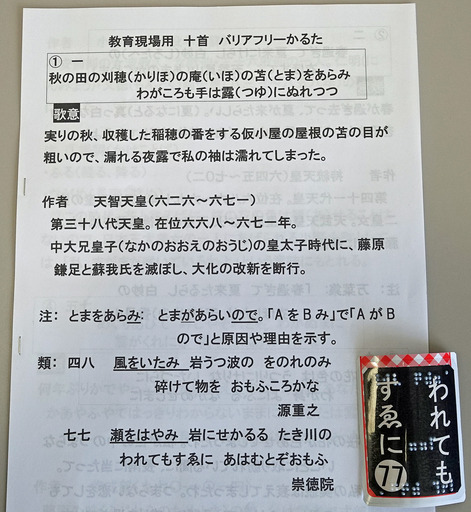 教育現場用　十首　バリアフリーかるた
① 一
秋の田の刈穂(かりほ)の庵(いほ)の苫(とま)をあらみ
わがころも手は露(つゆ)にぬれつつ
歌意
実りの秋、収穫した稲穂の番をする仮小屋の屋根の苫の目が
粗いので、漏れる夜露で私の袖は濡れてしまった。
作者　天智天皇(六二六～六七一)
第三十八代天皇。在位六六八～六七一年。
中大兄皇子(なかのおおえのおうじ)の皇太子時代に、藤原
鎌足と蘇我氏を滅ぼし、大化の改新を断行。
注：　とまをあらみ：　とまがあらいので。「A を B み」で「A が B
ので」と原因や理由を示す。
類：　四八　風をいたみ　岩うつ波の　をのれのみ
砕けて物を　おもふころかな
源重之
七七　瀬をはやみ　岩にせかるる　たき川の
われてもすゑに　あはむとぞおもふ
崇徳院
われても
すゑに
77